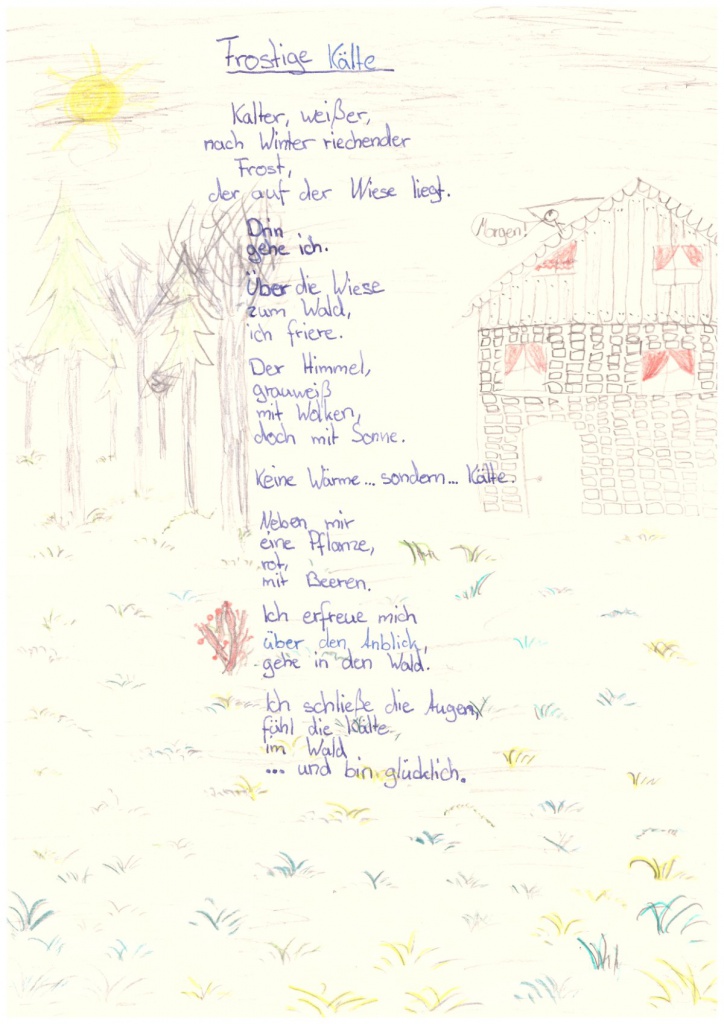 Frostige Kälte
Kalter, weißer,
nach Winter riechender
Frost,
der auf der Wiese liegt.
Morgen!
Drin
gehe ich.
Über die Wiese
zum Wald,
ich friere.
Der Himmel,
grauweiß
mit Wolken,
doch mit Sonne.
Keine Wärme... sondern... Kälte.
Neben mir
eine Pflanze,
rot,
mit Beeren.
Ich erfreue mich
über den Anblick,
gehe in den Wald.
Ich schließe die Augen,
fühl die Kälte,
im Wald
... und bin glücklich.